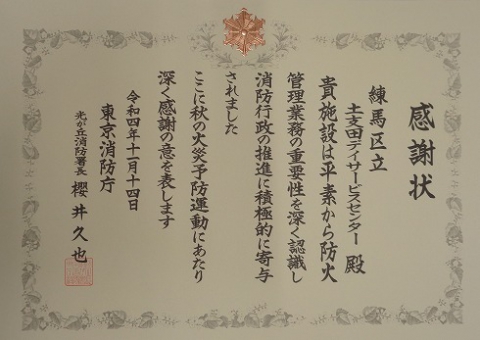 感謝状
練馬区立
土支田デイサービスセンター 殿
貴施設は平素から防火
管理業務の重要性を深く認識し
消防行政の推進に積極的に寄与
されました
ここに秋の火災予防運動にあたり
深く感謝の意を表します
令和四年十一月十四日
東京消防庁
光が丘消防署長 櫻井久也